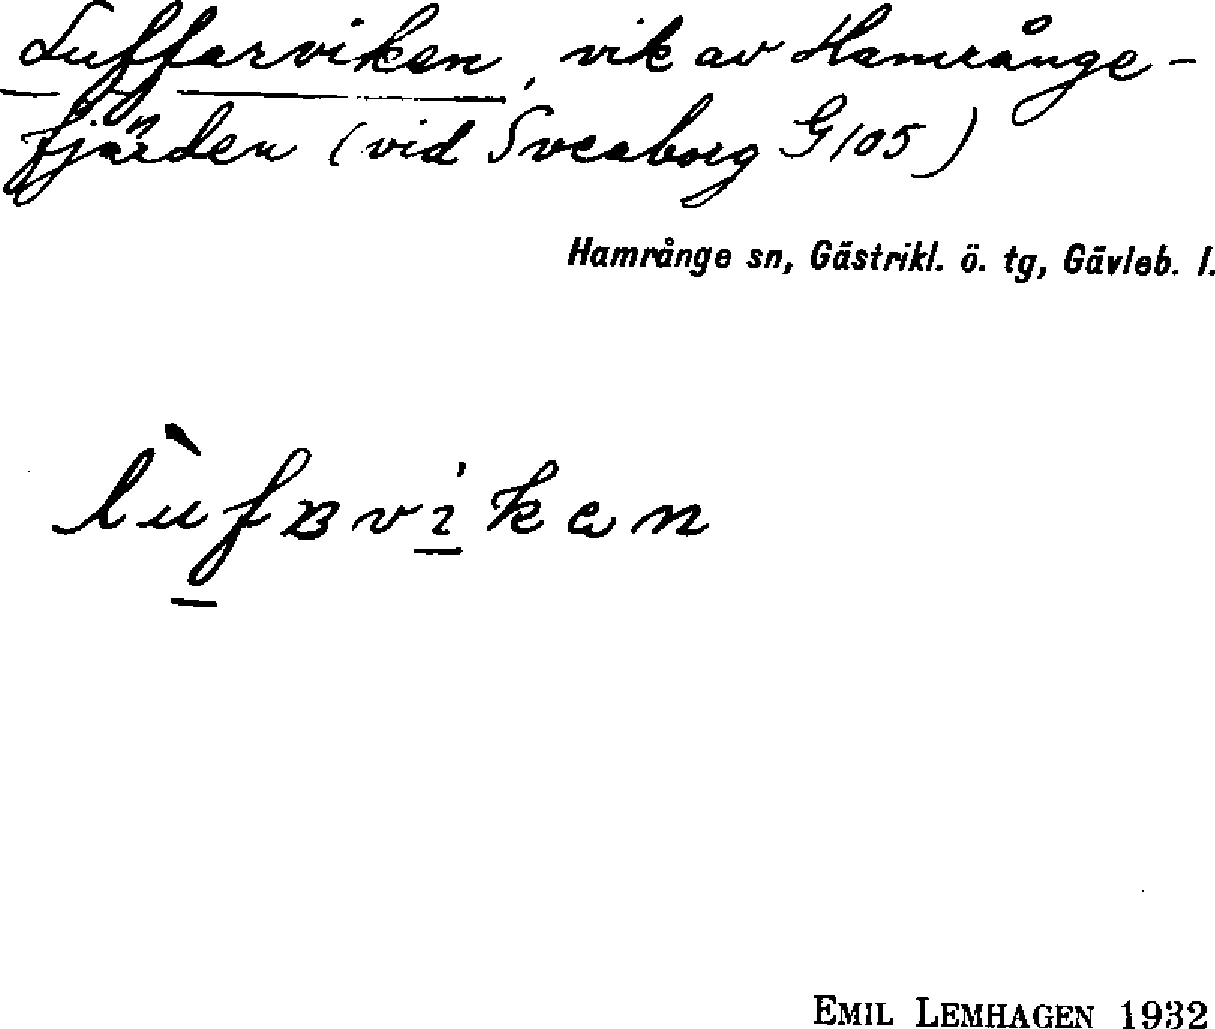 Luffarviken, vik av Hamrånge-
fjärden (vid Sveaborg G105)
Hamrånge sn, Gästrikl. ö. tg, Gävleb. l.
lùfʙvikən
EMIL LEMHAGEN 1932